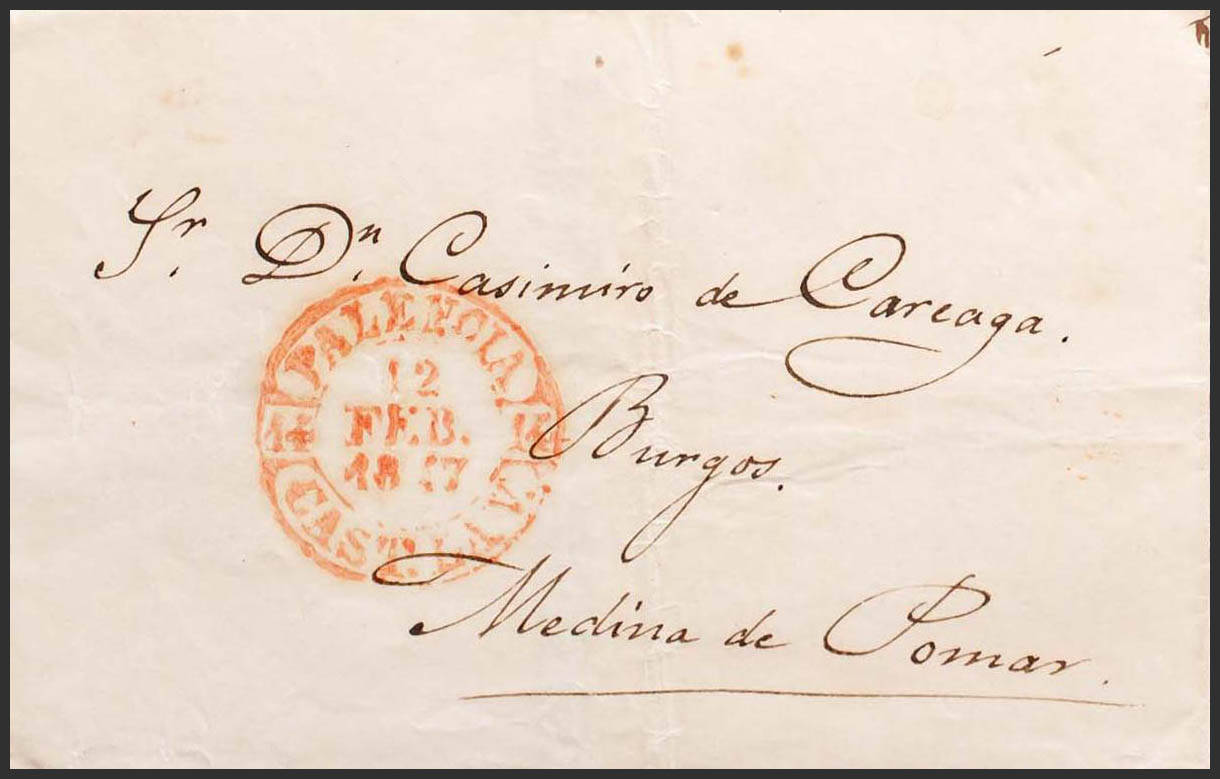 Sr. Dn. Casimiro de Careaga.
Burgos.
Medina de Pomar.
PALENCIA
12
FEB.
1847
14 14
CAST. LA V.